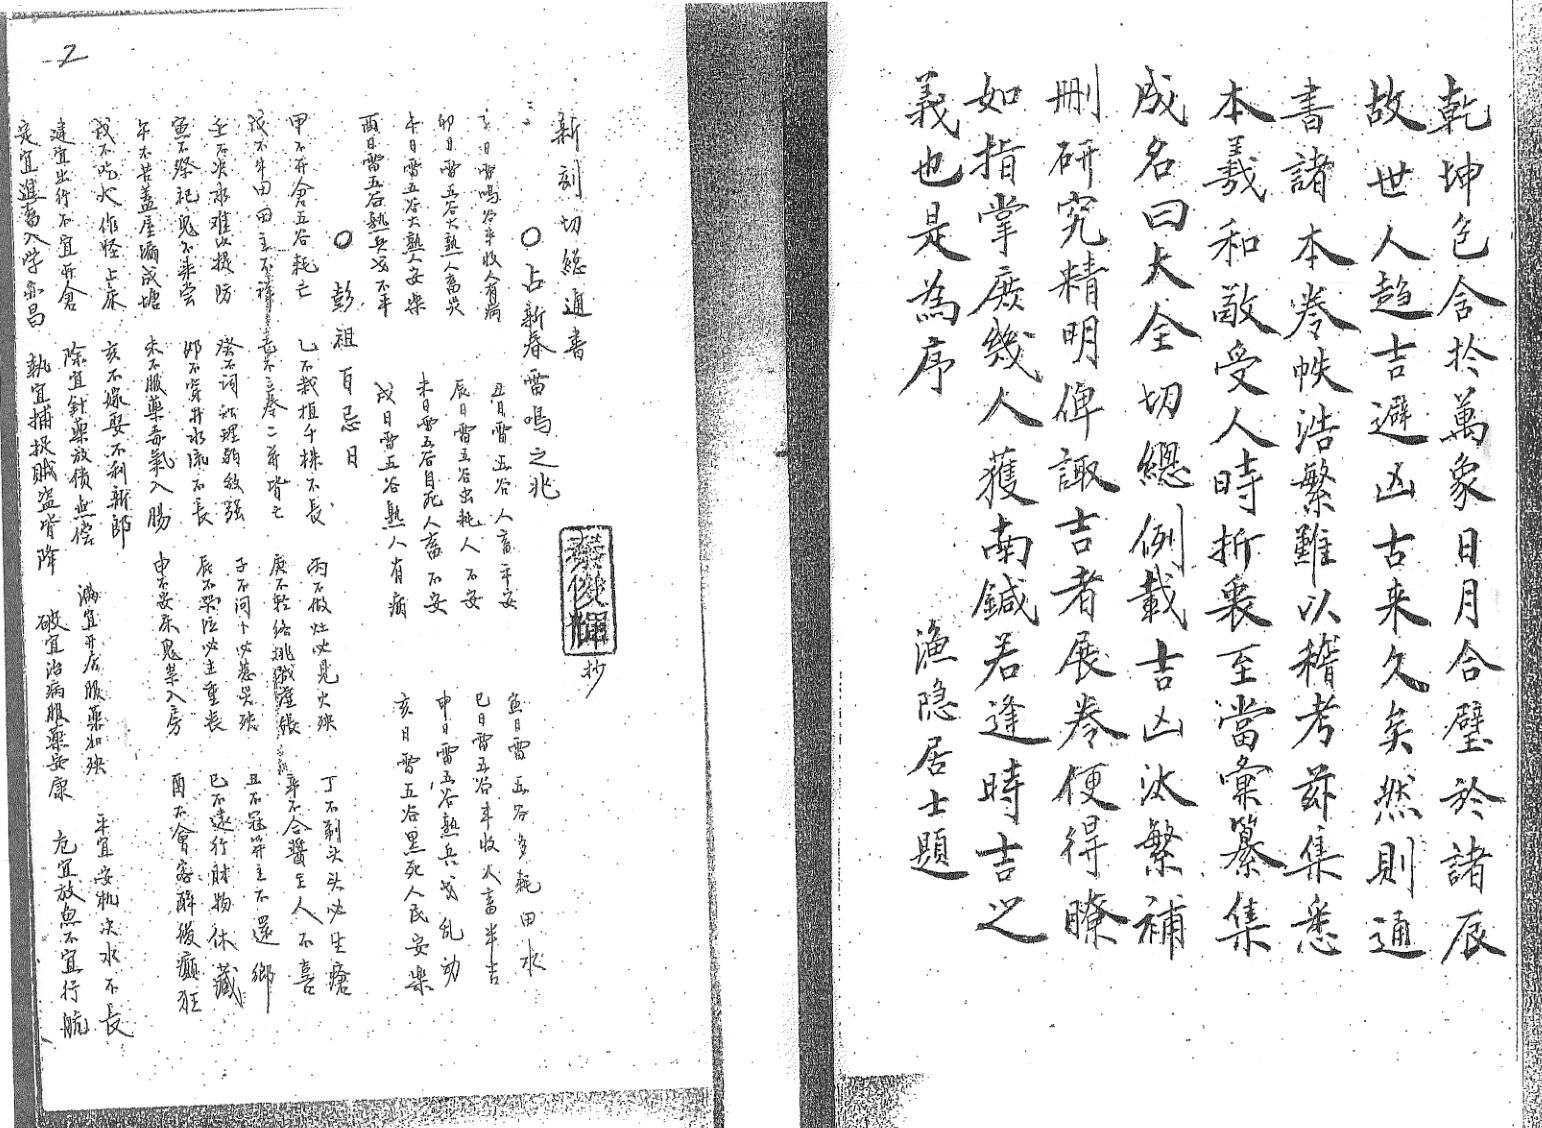 乾坤包含於萬象日月合璧於諸辰
故世人趨吉避凶古来久矣然則通
書諸本卷帙浩繁難以稽考茲集悉
本羲和敵受人時折衷至當彙纂集
成名曰大全切總例載吉凶汰繁補
刪研究精明俾諏吉者展卷便得瞭
如指掌庶幾人獲南鍼若逢時吉之
義也是為序
漁隐居士題
2
新刻切総通書
抄
○占新春雷鳴之兆
丑日雷五谷人畜平安
寅日雷五谷多耗田水
卯日雷五谷大熟人畜災
辰日雷五谷出耗人不安
巳日雷五谷半收人畜半吉
午日雷五谷大熟人安樂
未日雷五谷自死人畜不安
申日雷五谷熟兵戈乱动
酉日雷五谷熟兵戈不平
戌日雷五谷熟人有病
亥日雷五谷黑死人民安樂
○彭祖百忌日
甲不开倉五谷耗亡
乙不栽植千株不長
丙不做灶必見火殃
丁不剃头头必生瘡
戊不牛田田主不祥
庚不經絡
辛不合醬主人不喜
壬不决水难以提防
癸不词訟理弱敌强
子不问卜必惹灾殃
丑不冠笄主不還鄉
寅不祭祀鬼不来嘗
卯不穿井水流不長
辰不哭泣必主重喪
巳不遠行財物休藏
午不苫蓋屋漏成塘
未不服藥毒氣入腸
申不安床鬼祟入房
酉不會客醉後癲狂
戌不吃犬作怪上床
亥不嫁娶不利新郎
建宜出行不宜开倉
除宜針藥放债無偿
滿宜开店服藥加殃
平宜安机决水不長
定宜進畜入学亦昌
執宜捕捉賊盗皆降
破宜治病服藥安康
危宜放魚不宜行航